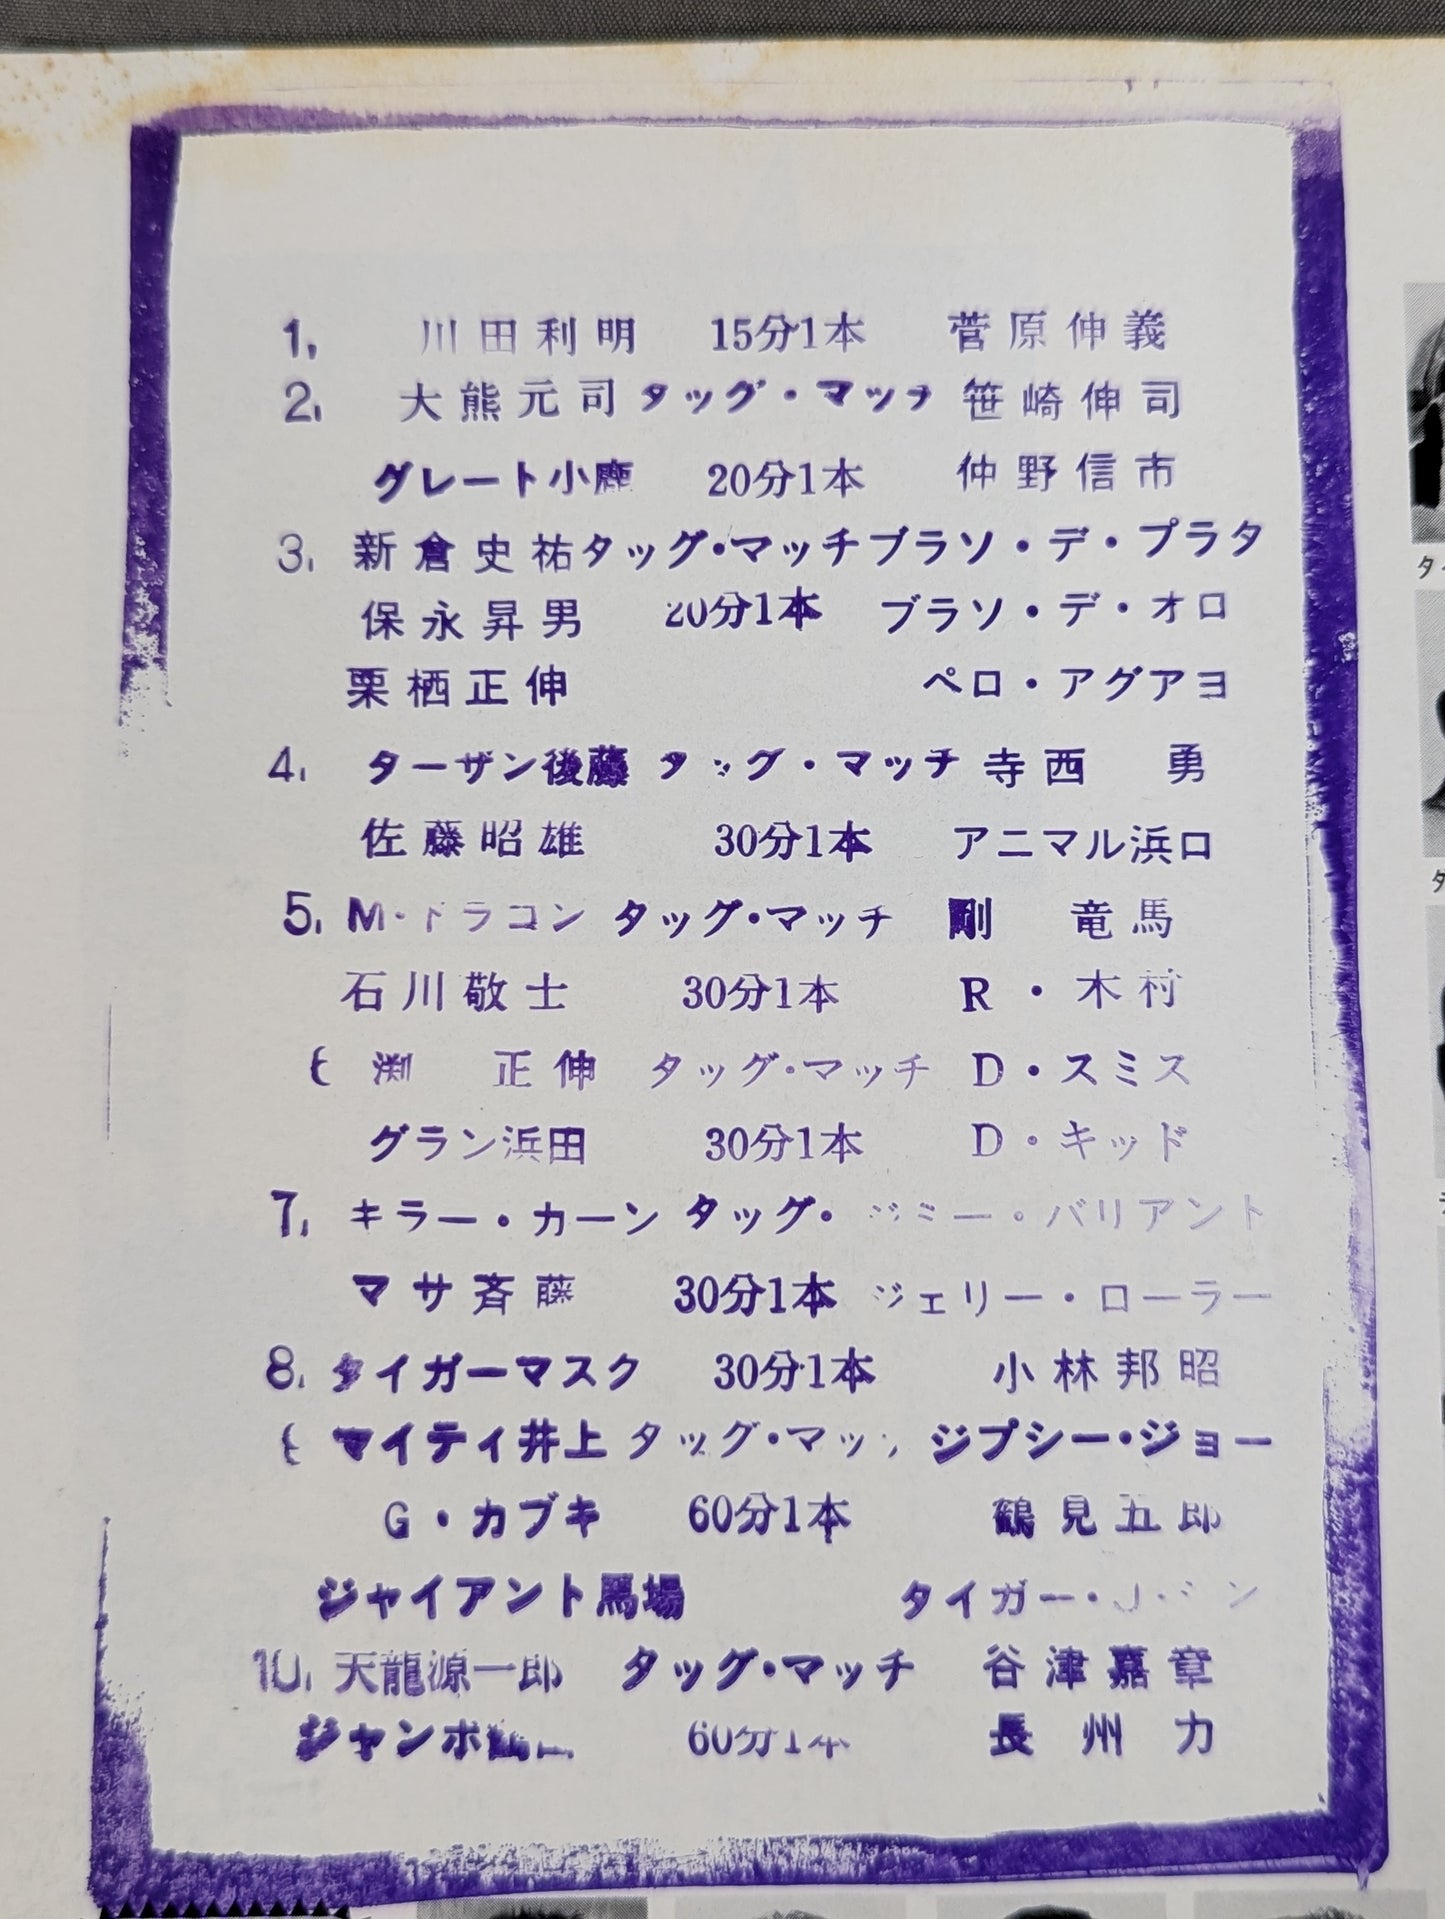 1, 川田利明 15分1本 菅原伸義
2, 大熊元司 タッグ・マッチ 笹崎伸司
グレート小鹿 20分1本 仲野信市
3, 新倉史祐 タッグ・マッチ ブラソ・デ・プラタ
保永昇男 20分1本 ブラソ・デ・オロ
栗栖正伸 ペロ・アグアヨ
4, ターザン後藤 タッグ・マッチ 寺西 勇
佐藤昭雄 30分1本 アニマル浜口
5, M・ドラゴン タッグ・マッチ 剛 竜馬
石川敬士 30分1本 R・木村
渕 正伸 タッグ・マッチ D・スミス
グラン浜田 30分1本 D・キッド
7, キラー・カーン タッグ・ ジミー・バリアント
マサ斉藤 30分1本 ジェリー・ローラー
8, タイガーマスク 30分1本 小林邦昭
マイティ井上 タッグ・マッ ジプシー・ジョー
G・カブキ 60分1本 鶴見五郎
ジャイアント馬場 タイガー・
10, 天龍源一郎 タッグ・マッチ 谷津嘉章
ジャンボ 60分1本 長州 力
タ
タ